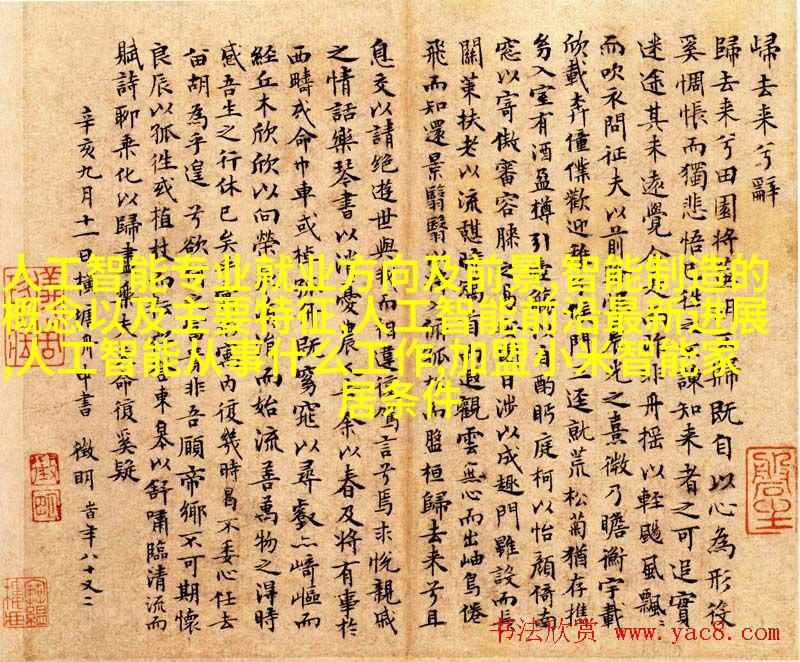 歸去来兮辭
歸去来兮田園將蕪胡不歸既自以心為形役
奚惆悵而獨悲悟已往之諫知来者之可追實
迷途其未遠覺今是昨非舟搖以輕颺風飄〻
而吹衣問征夫以前晨光之熹微乃瞻衡宇載
欣載奔僮僕歡迎稚候門三逕就荒松菊猶存攜
幼入室有酒盈樽引壺以自酌眄庭柯以怡顏倚南
窓以寄傲審容膝之易日涉以成趣門雖設而長
關策扶老以流憩首而遐觀雲無心而出岫鳥倦
飛而知還景翳翳以入撫孤松而盤桓歸去来兮且
息交以請絕遊世與我而相遺復駕言兮焉求悅親戚
之情話樂琴書以消憂農余以春及將有事於
西疇或命巾車或棹孤舟既窈窕以尋壑亦崎嶇而
經丘木欣欣以向榮而始流善萬物之得時
感吾生之行休已矣宇內復幾時曷不委心任去
留胡為乎遑兮欲何之富非吾願帝鄉不可期懷
良辰以孤往或植杖而登東皋以舒嘯臨清流而
賦詩聊乘化以歸盡樂夫命復奚疑
辛亥九月十一日橫塘舟中書 徵明 時年八十又二
人工智能专业就业方向及前景,智能制造的
概念以及主要特征,人工智能前沿最新进展
,人工智能从事什么工作,加盟小米智能家
居条件
书法欣赏 www.yac8.com